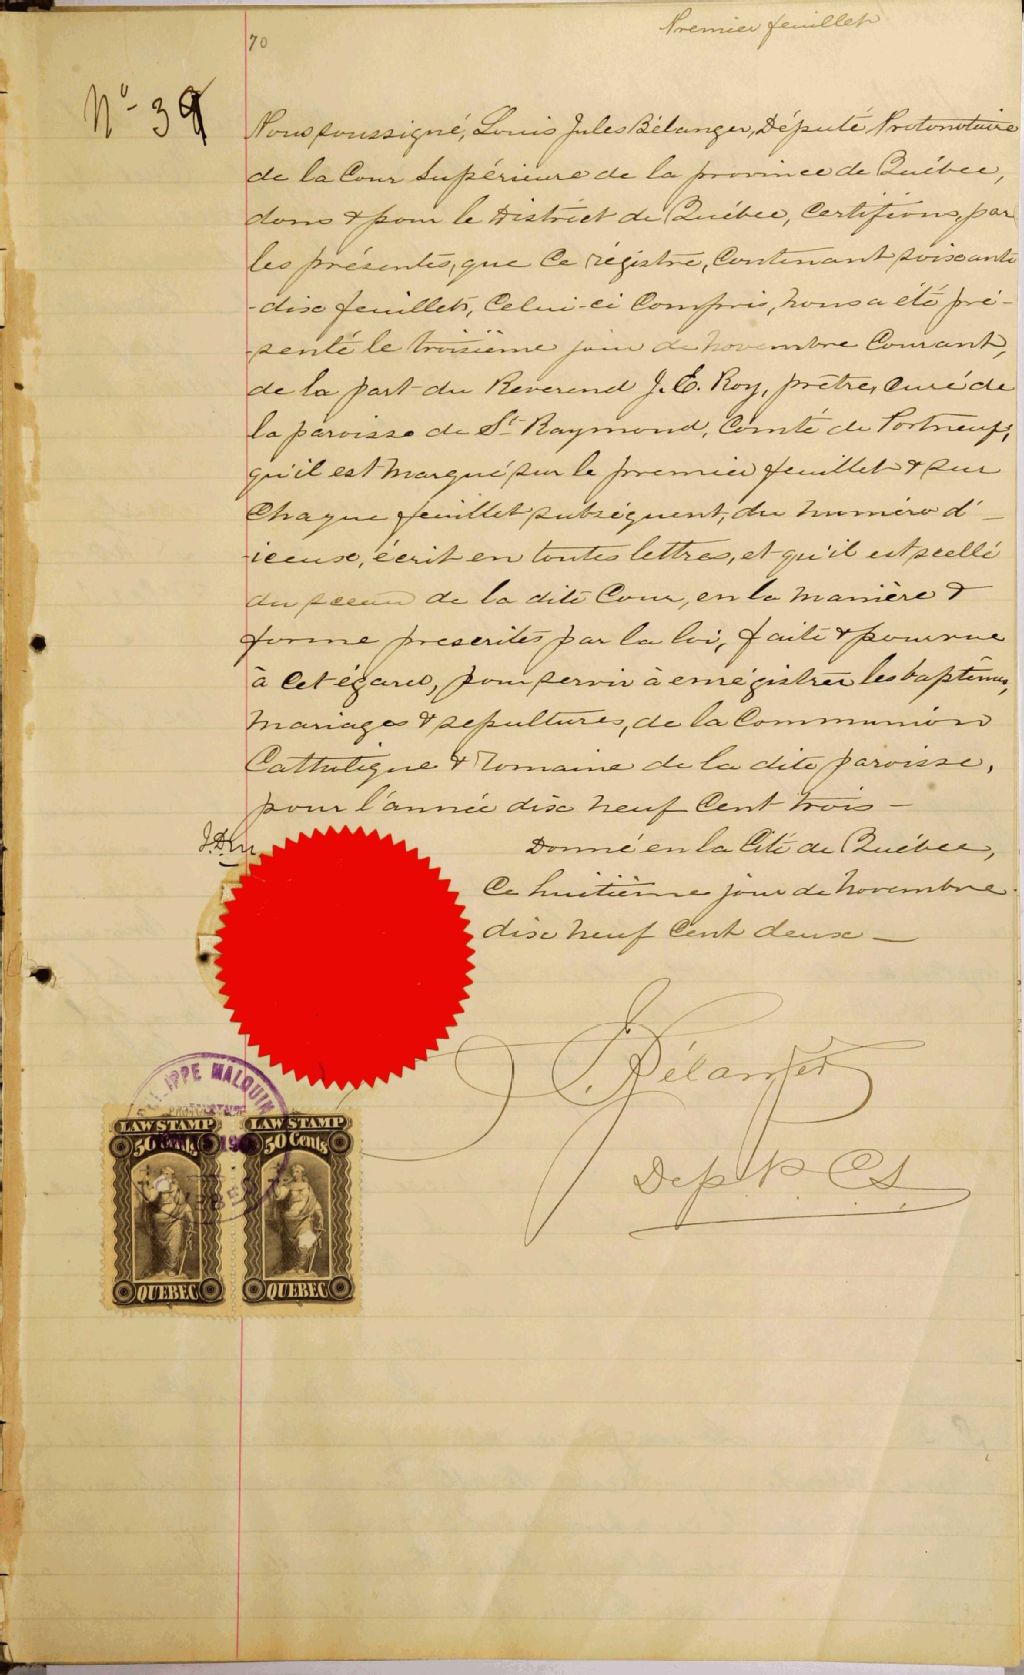 Premier feuillet
70
No 39
Nous soussigné, Louis Jules Bélanger, Député Protonotaire
de la Cour Supérieure de la province de Québec,
dans & pour le District de Québec, Certifions, par
les présentes, que ce régistre, Contenant soixante
-dix feuillets, Celui-ci Compris, nous a été pré-
-senté le troisième jour de novembre Courant,
de la part du Reverend J. E. Roy, prêtre, Curé de
la paroisse de St Raymond, Comté de Portneuf;
qu'il est marqué sur le premier feuillet & sur
Chaque feuillet subséquent, du numéro d'-
-iceux, écrit en toutes lettres, et qu'il est scellé
du sceau de la dite Cour, en la manière &
forme prescrites par la loi, faite & pourvue
à Cet égard, pour servir à enrégistrer les baptêmes,
Mariages & sepultures, de la Communion
Catholique & Romaine de la dite paroisse,
pour l'année dix neuf Cent trois -
Donné en la Cité de Québec,
Ce huitième jour de novembre
dix neuf Cent deux -
J. Bélanger
Dep. P. C.S.
PHILIPPE MALOUIN
LAW STAMP LAW STAMP
50 Cents 50 Cents
QUEBEC QUEBEC